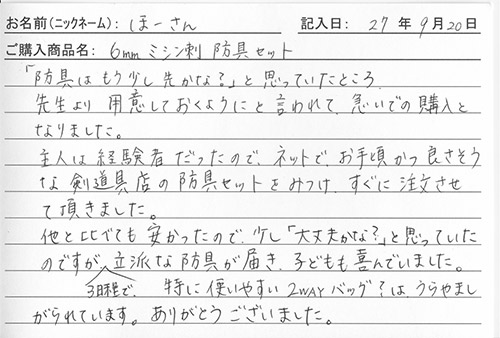 お名前(ニックネーム): ほーさん 記入日: 27年9月20日
ご購入商品名: 6mm ミシン刺 防具セット
「防具はもう少し先かな?」と思っていたところ、
先生より 用意しておくようにと言われて、急いでの購入と
なりました。
主人は経験者だったので、ネットで、お手頃かつ良さそう
な剣道具店の防具セットをみつけ、すぐに注文させ
て頂きました。
他と比べても安かったので、少し「大丈夫かな?」と思っていた
のですが、立派な防具が届き、子どもも喜んでいました。
3日程で、 特に使いやすい2WAYバッグは、うらやまし
がられています。ありがとうございました。